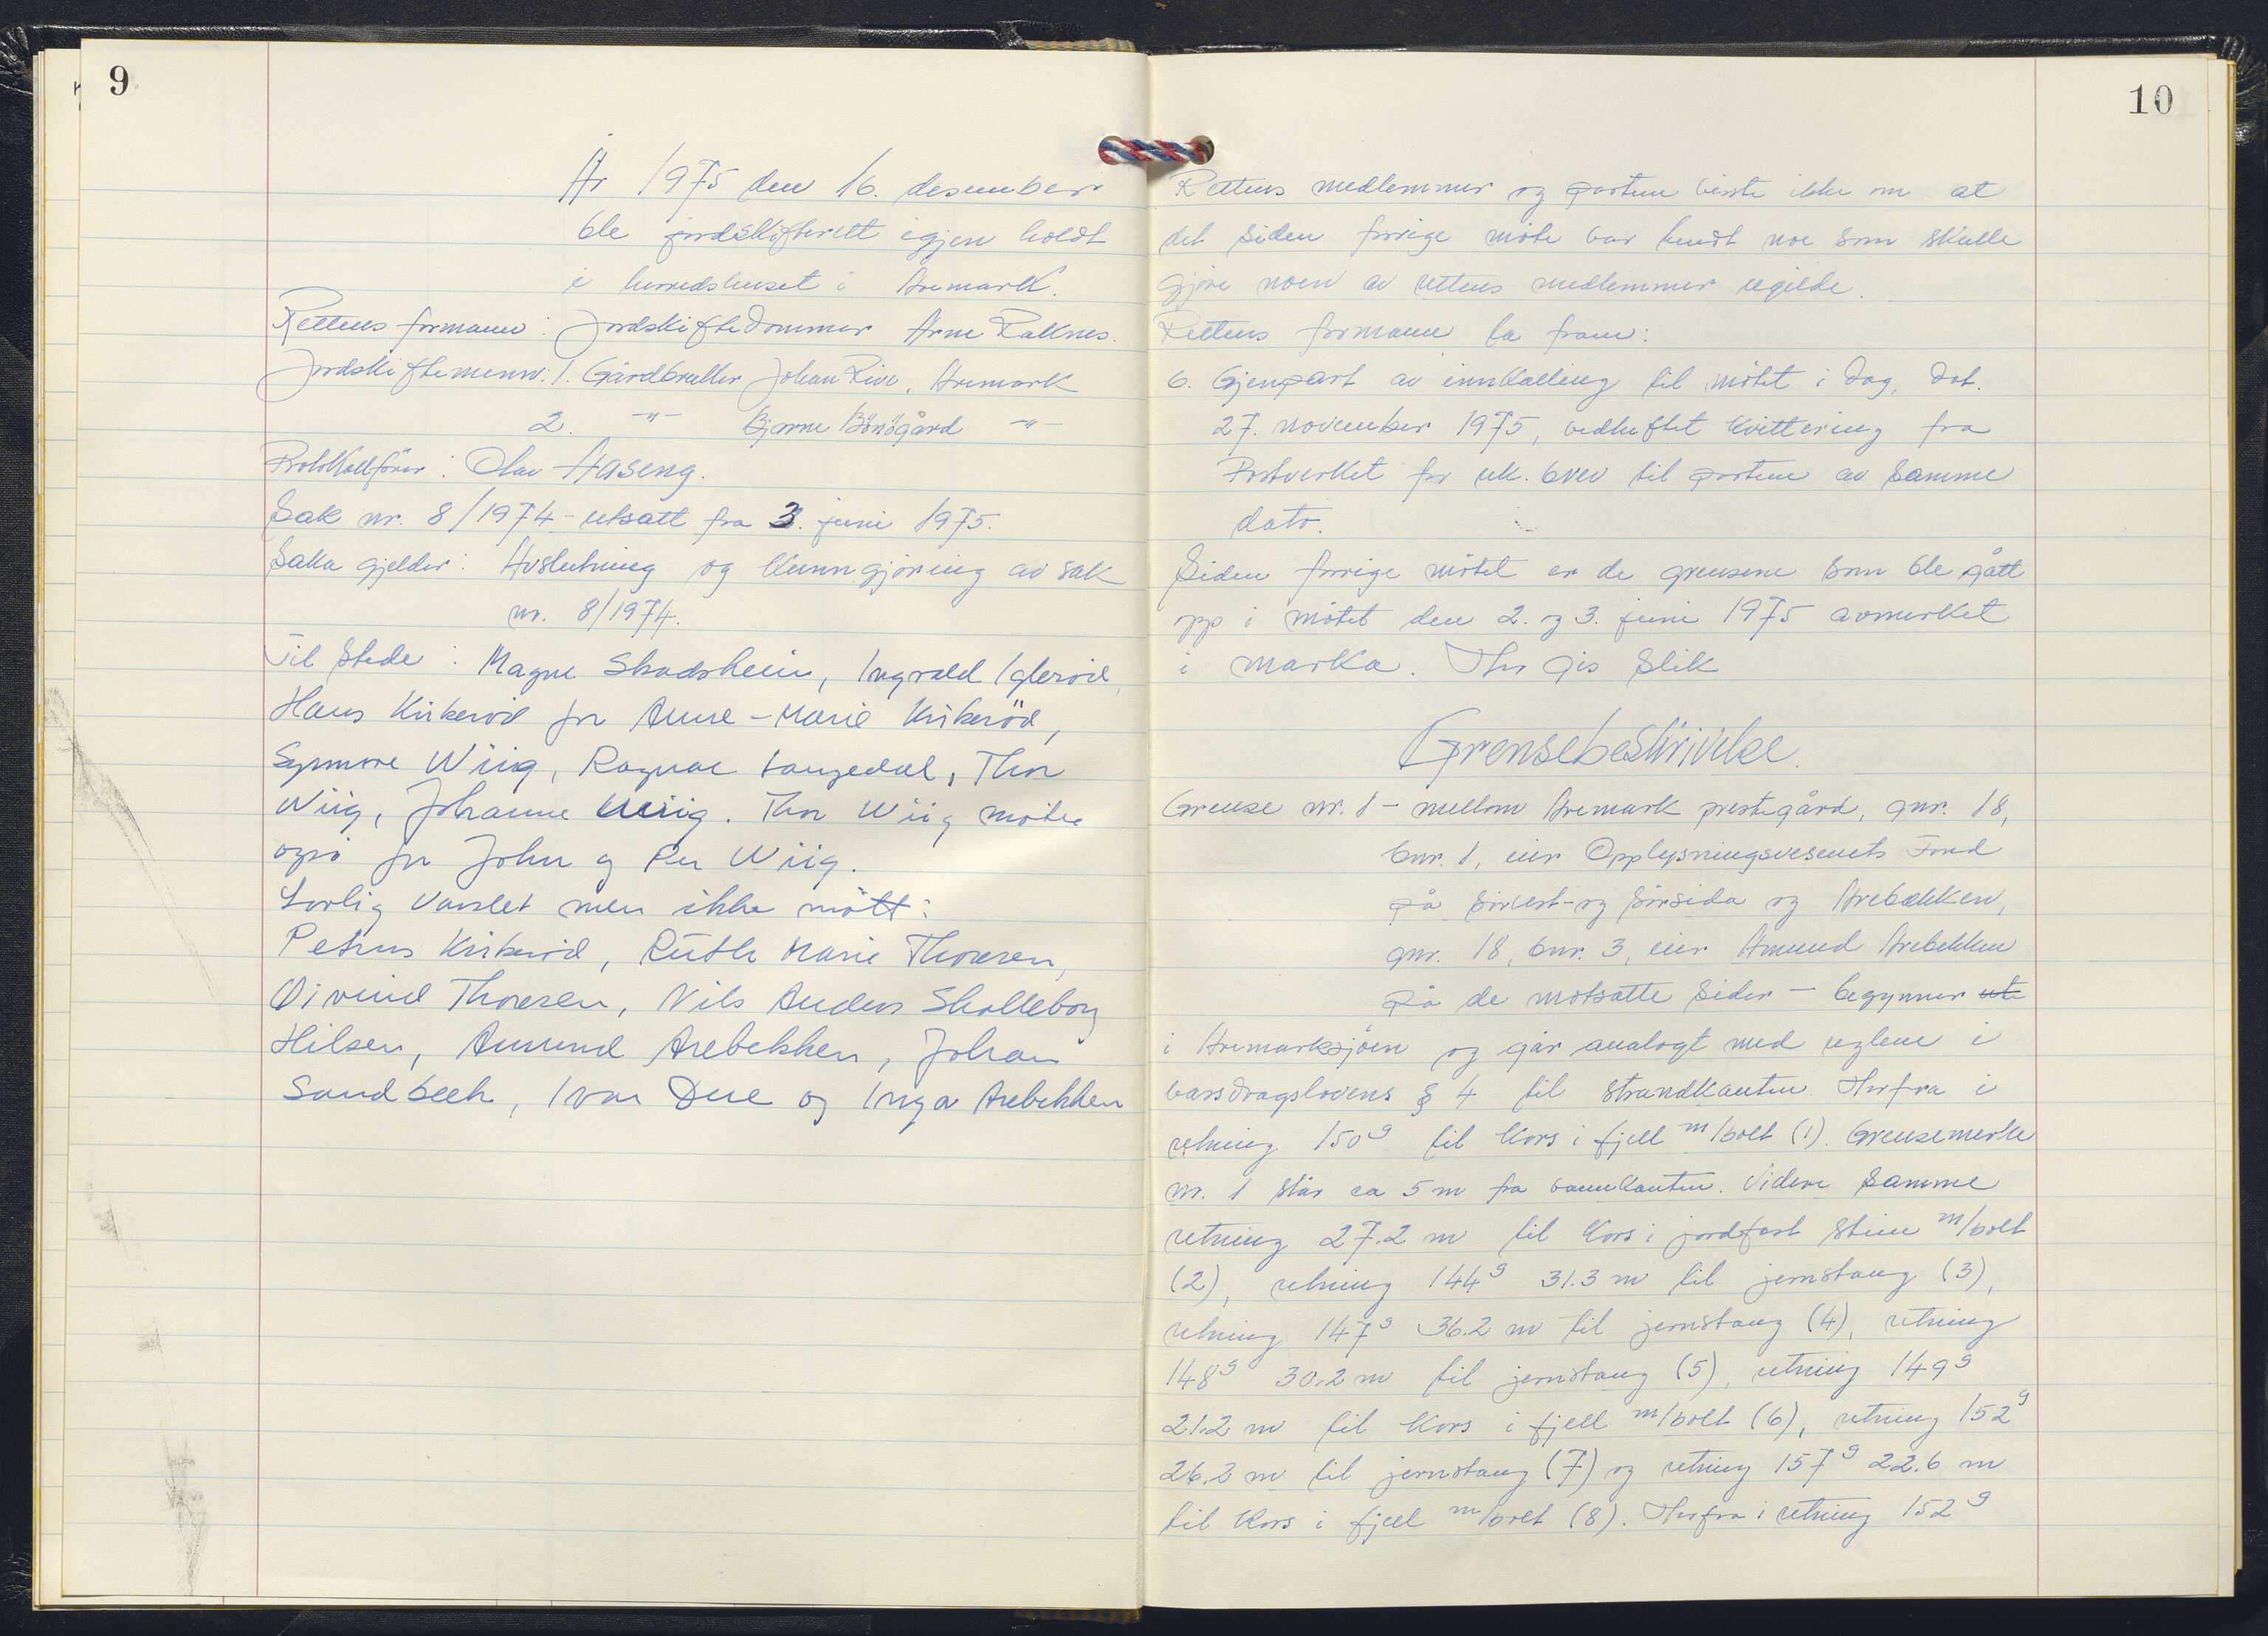 9
År 1975 den 16. desember
ble jordskifterett igjen holdt
i herredshuset i Aremark.
Rettens formann: Jordskiftedommer Arne Raknes.
Jordskiftemenn: 1. Gårdbruker Johan Rive, Aremark
2. -"- Bjarne Bönögård -"-
Protokollfører: Olav Haseng.
Sak nr. 8/1974 - utsatt fra 3. juni 1975.
Saka gjelder: Avslutning og kunngjøring av sak
nr. 8/1974.
Til stede: Magne Skadsheim, Ingvald Igleröd,
Hans Kirkeröd for Anne-Marie Kirkeröd,
Synnöve Wiig, Ragnar Langedal, Thor
Wiig, Johanne Wiig. Thor Wiig møter
også for John og Per Wiig.
Lovlig varslet men ikke møtt:
Petrus Kirkeröd, Ruth Marie Thoresen,
Øivind Thoresen, Nils Anders Skolleborg
Hilsen, Amund Arebekken, Johan
Sandbeck, Ivar Due og Inga Arebekken
10
Rettens medlemmer og partene visste ikke om at
det siden forrige møte var hendt noe som skulle
gjøre noen av rettens medlemmer ugilde.
Rettens formann la fram:
6. Gjenpart av innkalling til møtet i dag, dat.
27. november 1975, vedheftet kvittering fra
Postverket for rek. brev til partene av samme
dato.
Siden forrige møtet er de grensene som ble gått
opp i møtet den 2. og 3. juni 1975 avmerket
i marka. Her gis slik
Grensebeskrivelse.
Grense nr. 1 - mellom Aremark prestegård, gnr. 18,
bnr. 1, eier Opplysningsvesenets Fond
på sørvest- og sørsida og Arebækken,
gnr. 18, bnr. 3, eier Amund Arebekken
på de motsatte sider - begynner ute
i Aremarksjøen og går analogt med reglene i
vassdragslovens § 4 til strandkanten. Herfra i
retning 150g til kors i fjell m/bolt (1). Grensemerke
nr. 1 står ca 5 m fra vannkanten. Videre samme
retning 27.2 m til kors i jordfast stein m/bolt
(2), retning 144g 31.3 m til jernstang (3),
retning 147g 36.2 m til jernstang (4), retning
148g 30.2 m til jernstang (5), retning 149g
21.2 m til kors i fjell m/bolt (6), retning 152g
26.2 m til jernstang (7) og retning 157g 22.6 m
til kors i fjell m/bolt (8). Herfra i retning 152g